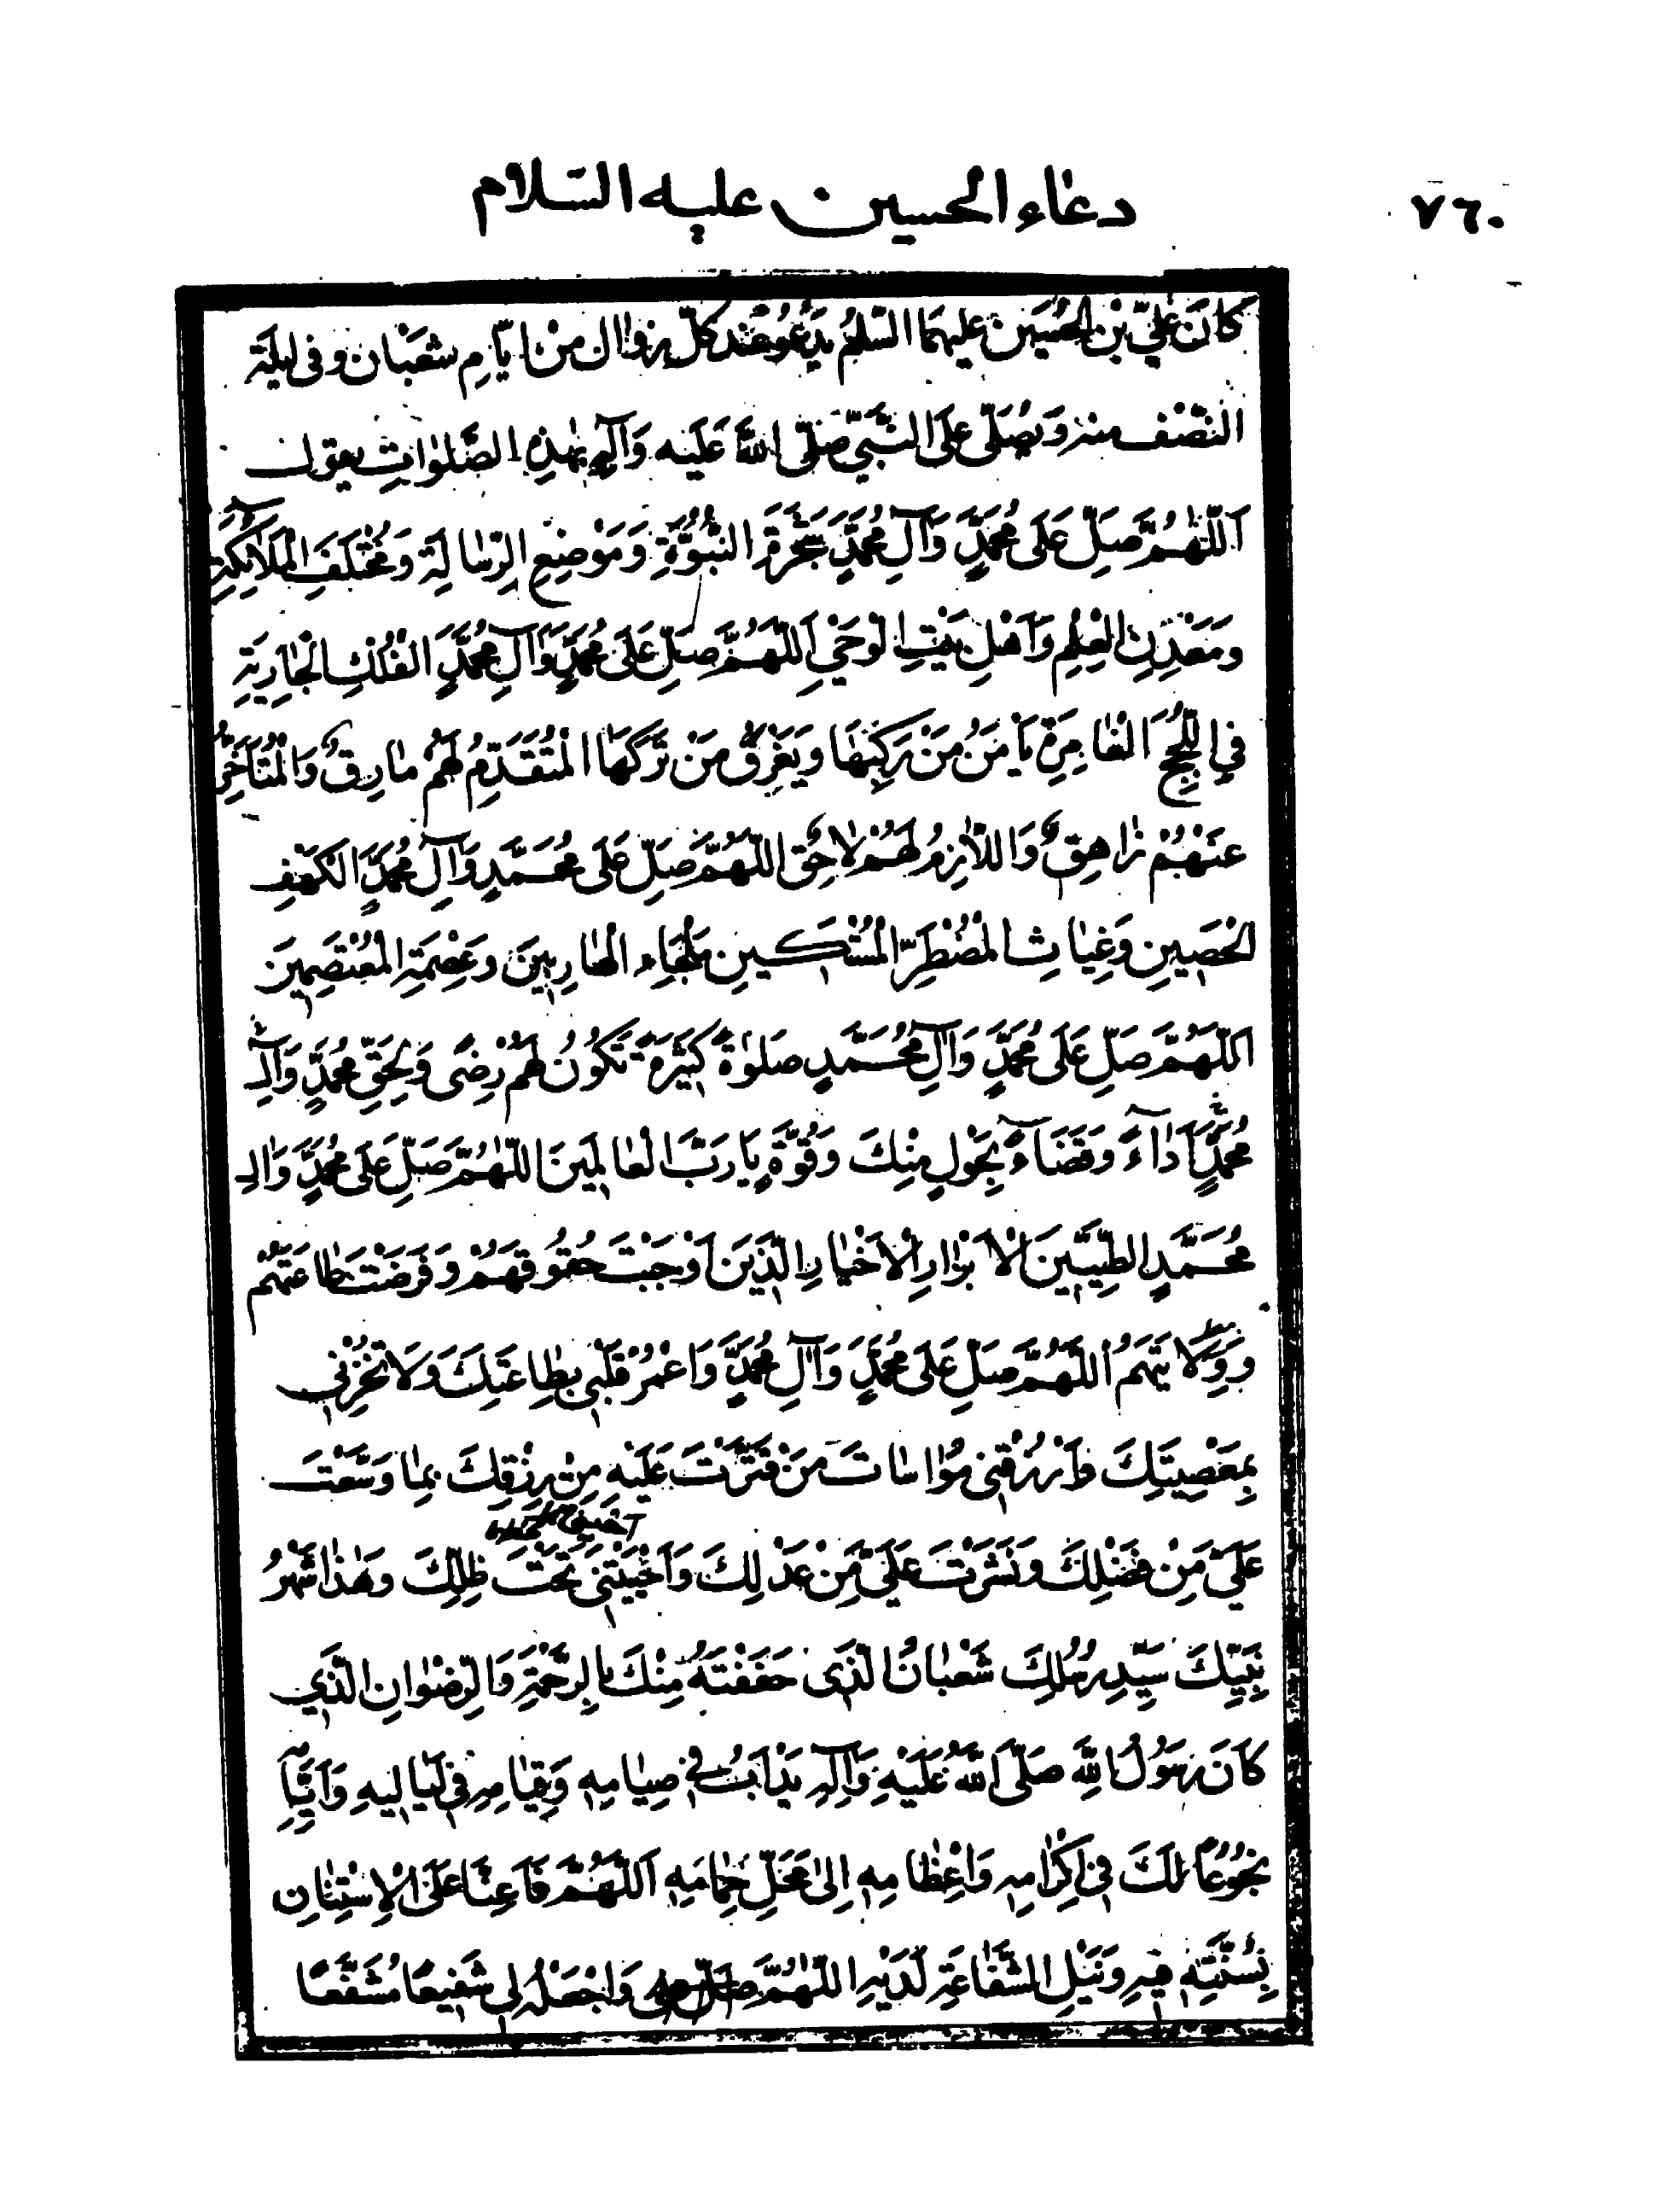 ٧٦٠
دعاء الحسين عليه السّلام
كانَ عَلِيّ بْنِ الحُسَيَن عليهمَا السّلمُ يَدْعُو عِنْدَ كلّ زوٰال مْن ايّامِ شعْبٰان وفى ليلَة
النّصْف منه وَيُصَلّى عَلَى النَّبّي صَلّى اللهُ عَلَيْه وَآلِهِ بهٰذِهِ الصَّلوٰاتِ يقول
اَللّهُمَّ صَلِّ عَلَى مُحَمَّدٍ وَآلِ مُحَمَّدٍ شَجَرَةِ النُّبُوَّةِ وَمَوْضِعِ الرّسٰالَةِ وَمُخْتَلَفِ الْمَلاَئِكَةِ
وَمَعْدِنِ الْعِلْمِ وَاَهْلِ بَيْتِ الْوَحْيِ اَللّهُمَّ صَلِّ عَلَى مُحَمَّدٍ وَآلِ مُحَمَّدٍ الْفُلْكِ الْجٰارِيَةِ
فِي اللُّجَجِ الْغٰامِرَةِ يَأمَنُ مَنْ رَكِبَهٰا وَيَغْرَقُ مَنْ تَرَكَهَا الْمُتَقَدِّمُ لَهُمْ مٰارِقٌ وَالْمُتَأَخِّرُ
عَنْهُمْ زٰاهِقٌ وَاللّاٰزِمُ لَهُمْ لاٰحِقٌ اللّهُمَّ صَلِّ عَلَى مُحَمَّدٍ وَآلِ مُحَمَّدٍ الْكَهْفِ
الحَصَيِنِ وَغِيٰاثِ المُضْطَرِّ الْمُسْتَكينِ مَلْجَاءِ الْهٰارِبِينَ وَعِصْمَةِ الْمُعْتَصِمِينَ
اللّهُمَّ صَلِّ عَلَى مُحَمَّدٍ وَآلِ مُحَمَّدٍ صَلوٰةً كَثيرَةً تَكُونُ لَهُمْ رِضًى وَلِحَقِّ مُحَمَّدٍ وَآلِ
مُحَمَّدٍ اَدٰاءً وَقَضٰآءً بِحَوْلٍ مِنْكَ وَقُوَّةٍ يٰا رَبَّ الْعٰالَمِينَ اللّهُمَّ صَلِّ عَلَى مُحَمَّدٍ وَال
مُحَمَّدٍ الطَّيِّبِينَ الْاَبْرٰارِ الْاَخْيٰارِ الَّذِينَ اَوْجَبْتَ حُقُوقَهُمْ وَفَرَضْتَ طٰاعَتَهُمْ
وَوِلاٰيَتَهُمْ اللّهُمَّ صَلِّ عَلَى مُحَمَّدٍ وَآلِ مُحَمَّدٍ وَاعْمُرْ قَلْبِي بِطٰاعَتِكَ وَلاَ تُخْزِنِي
بِمَعْصِيَتِكَ وَارْزُقْنِي مُوٰاسٰاتَ مَنْ قَتَّرْتَ عَلَيْهِ مِنْ رِزْقِكَ بِمٰا وَسَّعْتَ
عَلَيَّ مِنْ فَضْلِكَ وَنَشَرْتَ عَلَيَّ مِنْ عَدْلِكَ وَاَحْيَيْتَنِي تَحْتَ ظِلِّكَ وَهٰذٰا شَهْرُ
نَبِيِّكَ سَيِّدِ رُسُلِكَ شَعْبٰانُ الَّذِي حَفَفْتَهُ مِنْكَ بِالرَّحْمَةِ وَالرِّضْوٰانِ الَّذِي
كَانَ رَسُولُ اللهِ صَلَّى اللهُ عَلَيْهِ وَآلِهِ يَدْاَبُ فِي صِيٰامِهِ وَقِيٰامِهِ فِي لَيٰالِيهِ وَاَيّٰامِهِ
بُخُوعًا لَكَ فِي اِكْرٰامِهِ وَاِعْظٰامِهِ اِلىٰ مَحَلِّ حِمٰامِهِ اَللّهُمَّ فَاَعِنّٰا عَلَى الْاِسْتِنٰانِ
بِسُنَّتِهِ فِيهِ وَنَيْلِ الشَّفٰاعَةِ لَدَيْهِ اللّهُمَّ وَاجْعَلْهُ لِي شَفِيعًا مُشَفَّعًا